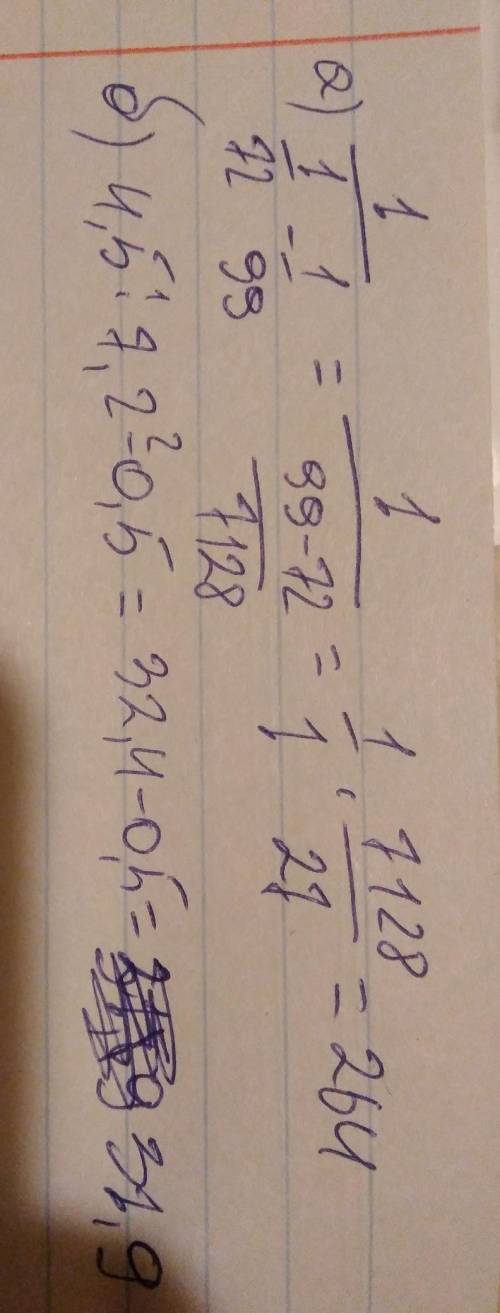 а) 1 / (1/72 - 1/99) = 1 / ((99-72)/7128) = 1/1 · 7128/27 = 264
б) 4,5 ·¹ 7,2 -² 0,5 = 32,4 - 0,5 = 31,9